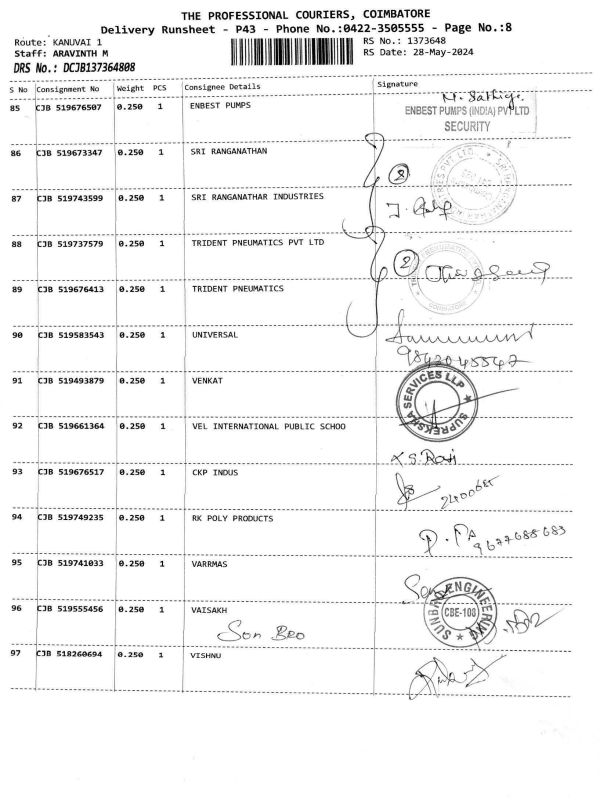 THE PROFESSIONAL COURIERS, COIMBATORE
Delivery Runsheet - P43 - Phone No.:0422-3505555 - Page No.:8
Route: KANUVAI 1
RS No.: 1373648
Staff: ARAVINTH M
RS Date: 28-May-2024
DRS No.: DCJB137364808
S No Consignment No Weight PCS Consignee Details Signature
85 CJB 519676507 0.250 1 ENBEST PUMPS
ENBEST PUMPS (INDIA) PVT LTD
SECURITY
86 CJB 519673347 0.250 1 SRI RANGANATHAN
87 CJB 519743599 0.250 1 SRI RANGANATHAR INDUSTRIES
88 CJB 519737579 0.250 1 TRIDENT PNEUMATICS PVT LTD
2
89 CJB 519676413 0.250 1 TRIDENT PNEUMATICS
COIMBATORE
90 CJB 519583543 0.250 1 UNIVERSAL
9842045547
91 CJB 519493879 0.250 1 VENKAT
SUPREKSHA SERVICES LLP
92 CJB 519661364 0.250 1 VEL INTERNATIONAL PUBLIC SCHOO
93 CJB 519676517 0.250 1 CKP INDUS
94 CJB 519749235 0.250 1 RK POLY PRODUCTS
9677688683
95 CJB 519741033 0.250 1 VARRMAS
96 CJB 519555456 0.250 1 VAISAKH
Son Bro
ENGINEERING
CBE-108
97 CJB 518260694 0.250 1 VISHNU